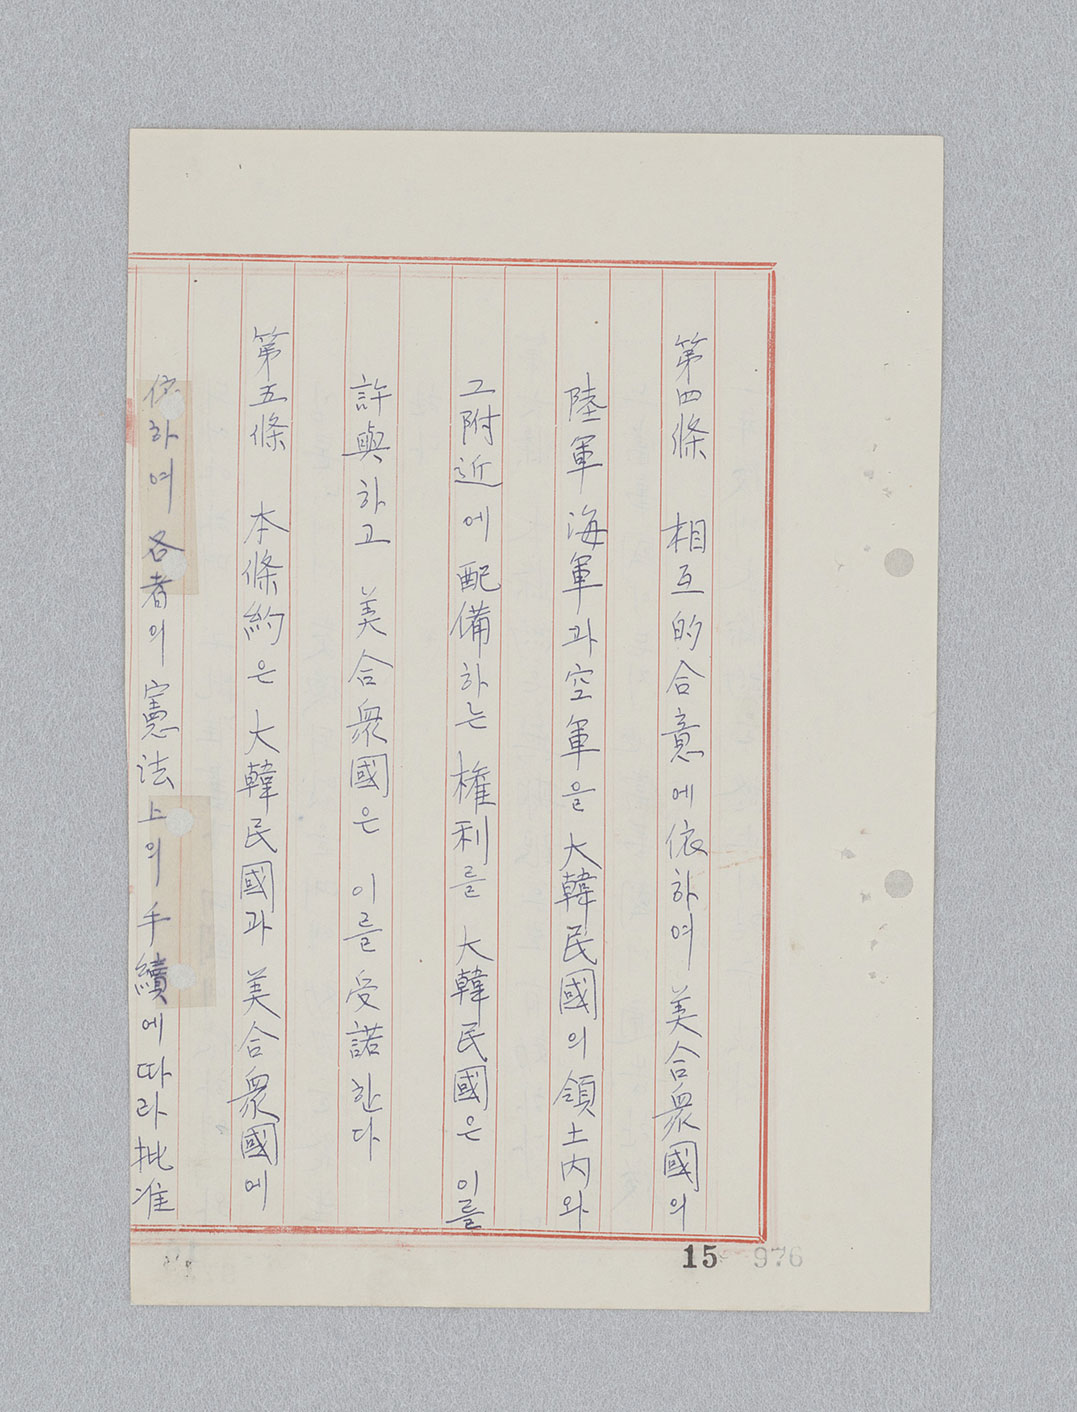 第四條 相互的合意에依하여 美合衆國의
陸軍 海軍과空軍을 大韓民國의 領土内와
그附近에 配備하는 權利를 大韓民國은 이를
許與하고 美合衆國은 이를 受諾한다
第五條 本條約은 大韓民國과 美合衆國에
依하여 各者의 憲法上의 手續에따라 批准
15
976